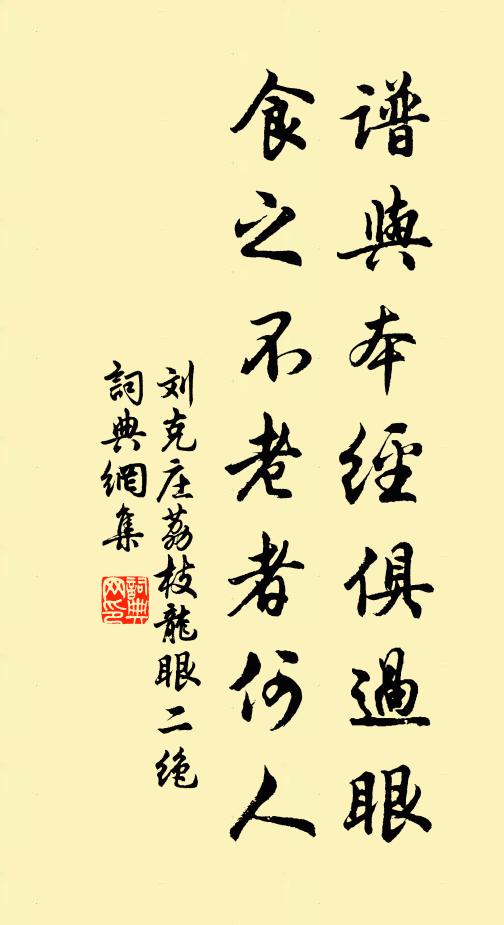 谱與本經俱過眼
食之不老者何人
刘克庄荔枝龍眼二绝
詞典網集
詞典網印